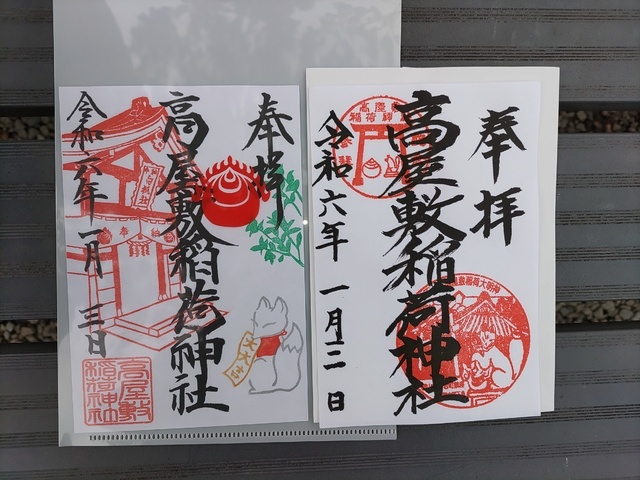 奉拝
高屋敷稲荷神社
令和六年一月二日
高屋敷稲荷神社
奉拝
高屋敷稲荷神社
令和六年一月三日
大大吉
高屋敷稲荷神社